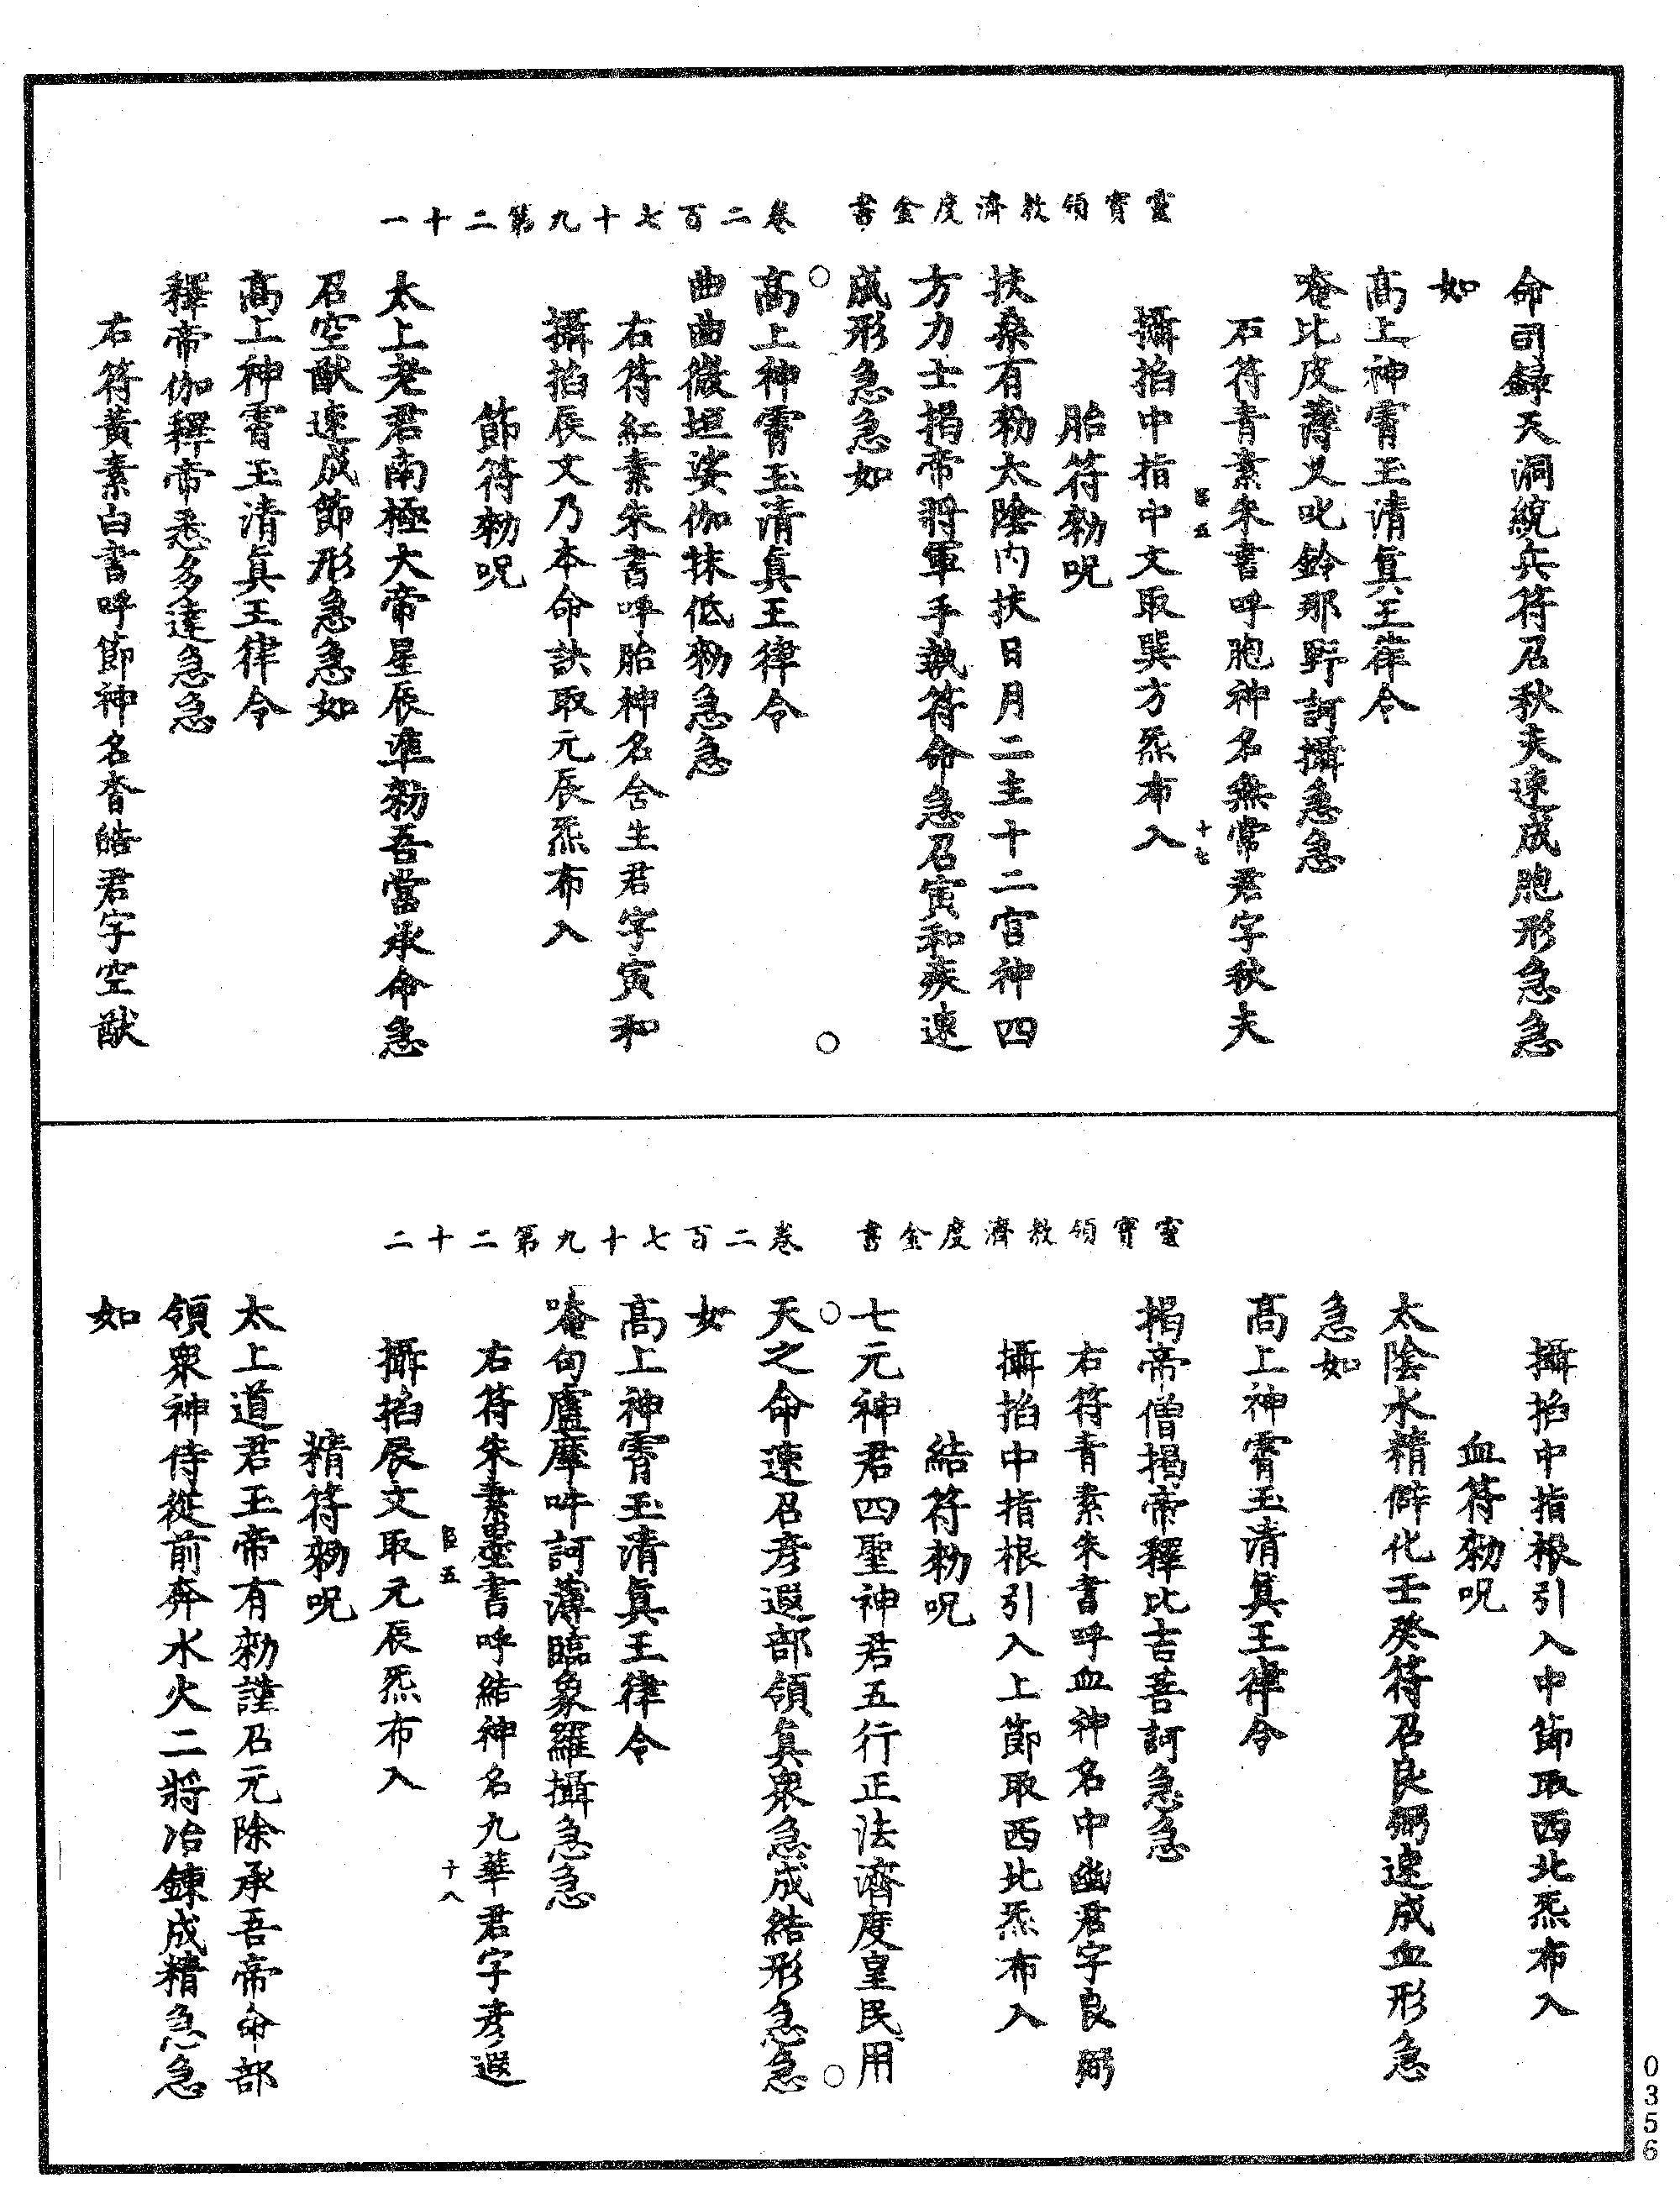 靈寶領教濟度金書　卷二百七十九第二十一
命司錄天洞統兵符召秋夫速成胞形急急
如
高上神霄玉清真王律令
唵比皮薄叉叱鈴那野訶攝急急
右符青素朱書呼胞神名無常君字秋夫
臣五　十七
攝掐中指中文取巽方炁布入
胎符勑呪
扶桑有勑太陰內扶日月二主十二宮神四
方力士揭帝將軍手執符命急召寅和疾速
成形急急如
高上神霄玉清真王律令
曲曲微垣娑伽抹低勑急急
右符紅素朱書呼胎神名舍生君字寅和
攝掐辰文乃本命訣取元辰炁布入
節符勑呪
太上老君南極大帝星辰準勑吾當承命急
召空猷速成節形急急如
高上神霄玉清真王律令
釋帝伽釋帝悉多達急急
右符黃素白書呼節神名杳皓君字空猷
靈寶領教濟度金書　卷二百七十九第二十二
攝掐中指根引入中節取西北炁布入
血符勑呪
太陰水精僻化壬癸符召良弼速成血形急
急如
高上神霄玉清真王律令
揭帝僧揭帝釋比吉菩訶急急
右符青素朱書呼血神名中幽君字良弼
攝掐中指根引入上節取西北炁布入
結符勑呪
七元神君四聖神君五行正法濟度皇民用
天之命速召彥遐部領真眾急成結形急急
如
高上神霄玉清真王律令
唵旬廬摩吽訶薄臨象羅攝急急
右符朱素墨書呼結神名九華君字彥遐
臣五　十八
攝掐辰文取元辰炁布入
精符勑呪
太上道君玉帝有勑謹召元除承吾帝命部
領眾神侍從前奔水火二將冶鍊成精急急
如
0356